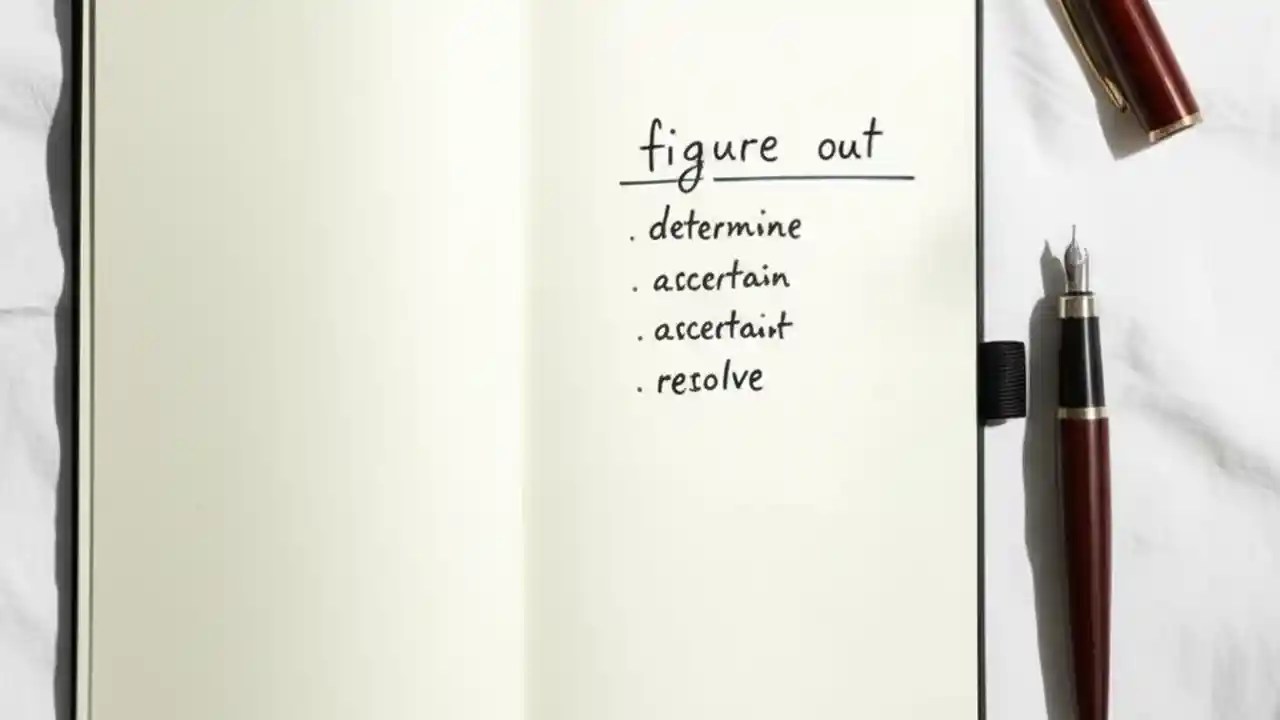 figure out
. determine
. ascertain
. ascertaist
. resolve